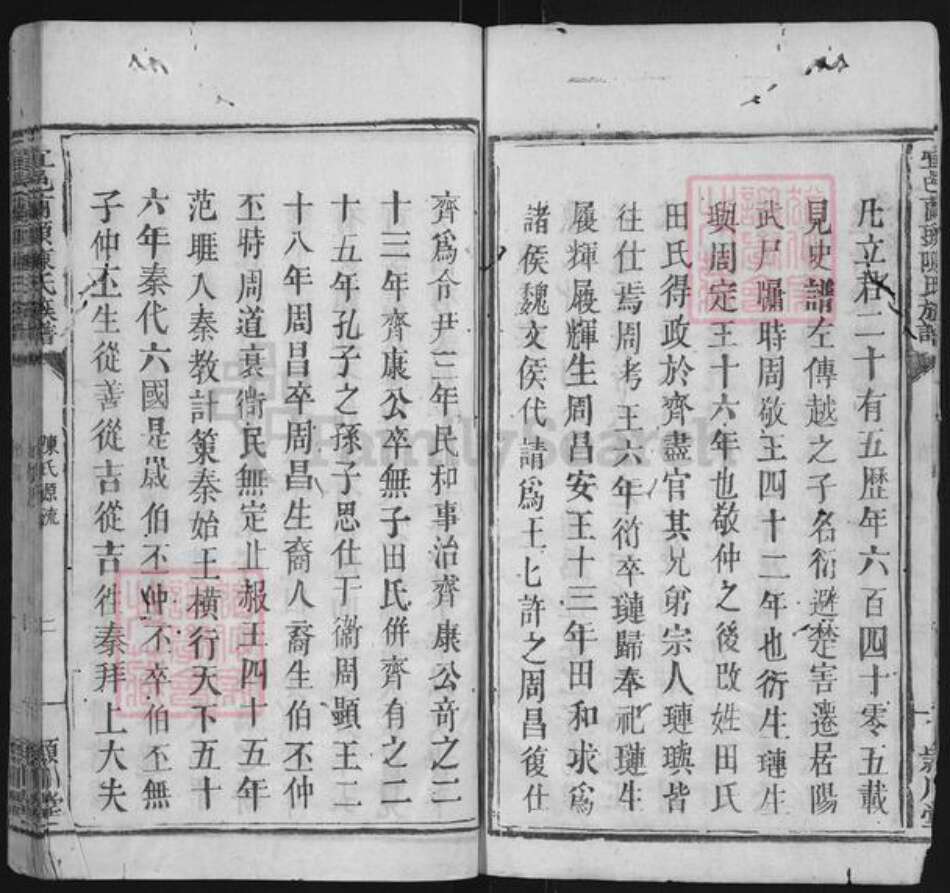 凡立君二十有五歷年六百四十零五載
見史譜左傳越之子名衍避楚害遷居陽
武尸牖時周敬王四十二年也衍生璉生
璵周定王十六年也敬仲之後改姓田氏
田氏得政於齊盡官其兄弟宗人璉璵皆
往仕焉周考王六年衍卒璉歸奉祀璉生
履輝履輝生周昌安王十三年田和求為
諸侯魏文侯代請為王七許之周昌復仕
齊為令尹三年民和事治齊康公竒之二
十三年齊康公卒無子田氏併齊有之二
十五年孔子之孫子思仕于衞周顯王二
十八年周昌卒周昌生裔人裔生伯丕仲
丕時周道衰衛民無定止赧王四十五年
范雎人秦教計策秦始王橫行天下五十
六年秦代六國是歲伯丕仲丕卒伯丕無
子仲丕生從善從吉從吉徃秦拜上大夫
宜邑南頭陳氏族譜
陳氏源流
二
潁川堂
FamilySearch